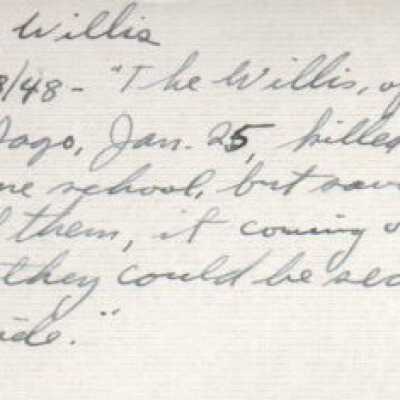 Willis
8/48 - "The Willis, of
Iago, Jan. 25, killed
ne school, but sav
d them, it coming o
they could be sec
ide."